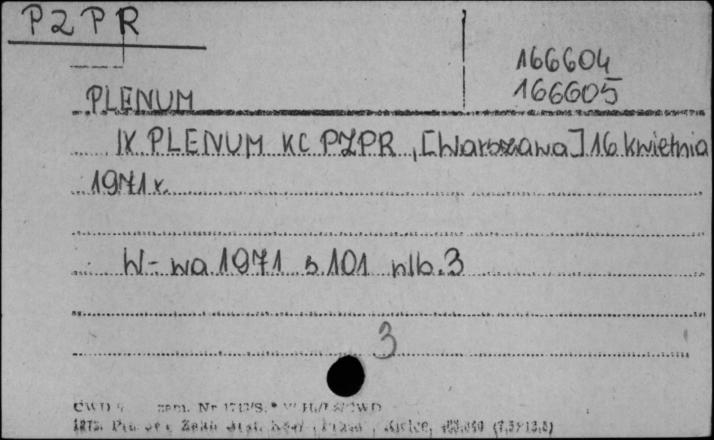 PZPR
166604
166605
PLENUM
IX PLENUM KC PZPR, [Warszawa] 16 kwietnia
1971 r.
W-wa 1971 s. 101 nlb. 3
3
CWD zam. Nr
1872. Kielce,